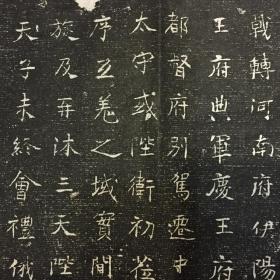 戟轉河南府伊陽
王府典軍慶王府
都督府別駕遷中
太守或陛衛初莅
序五㐮之域實間
旋及再沐三天陛
天子未終會禮俄